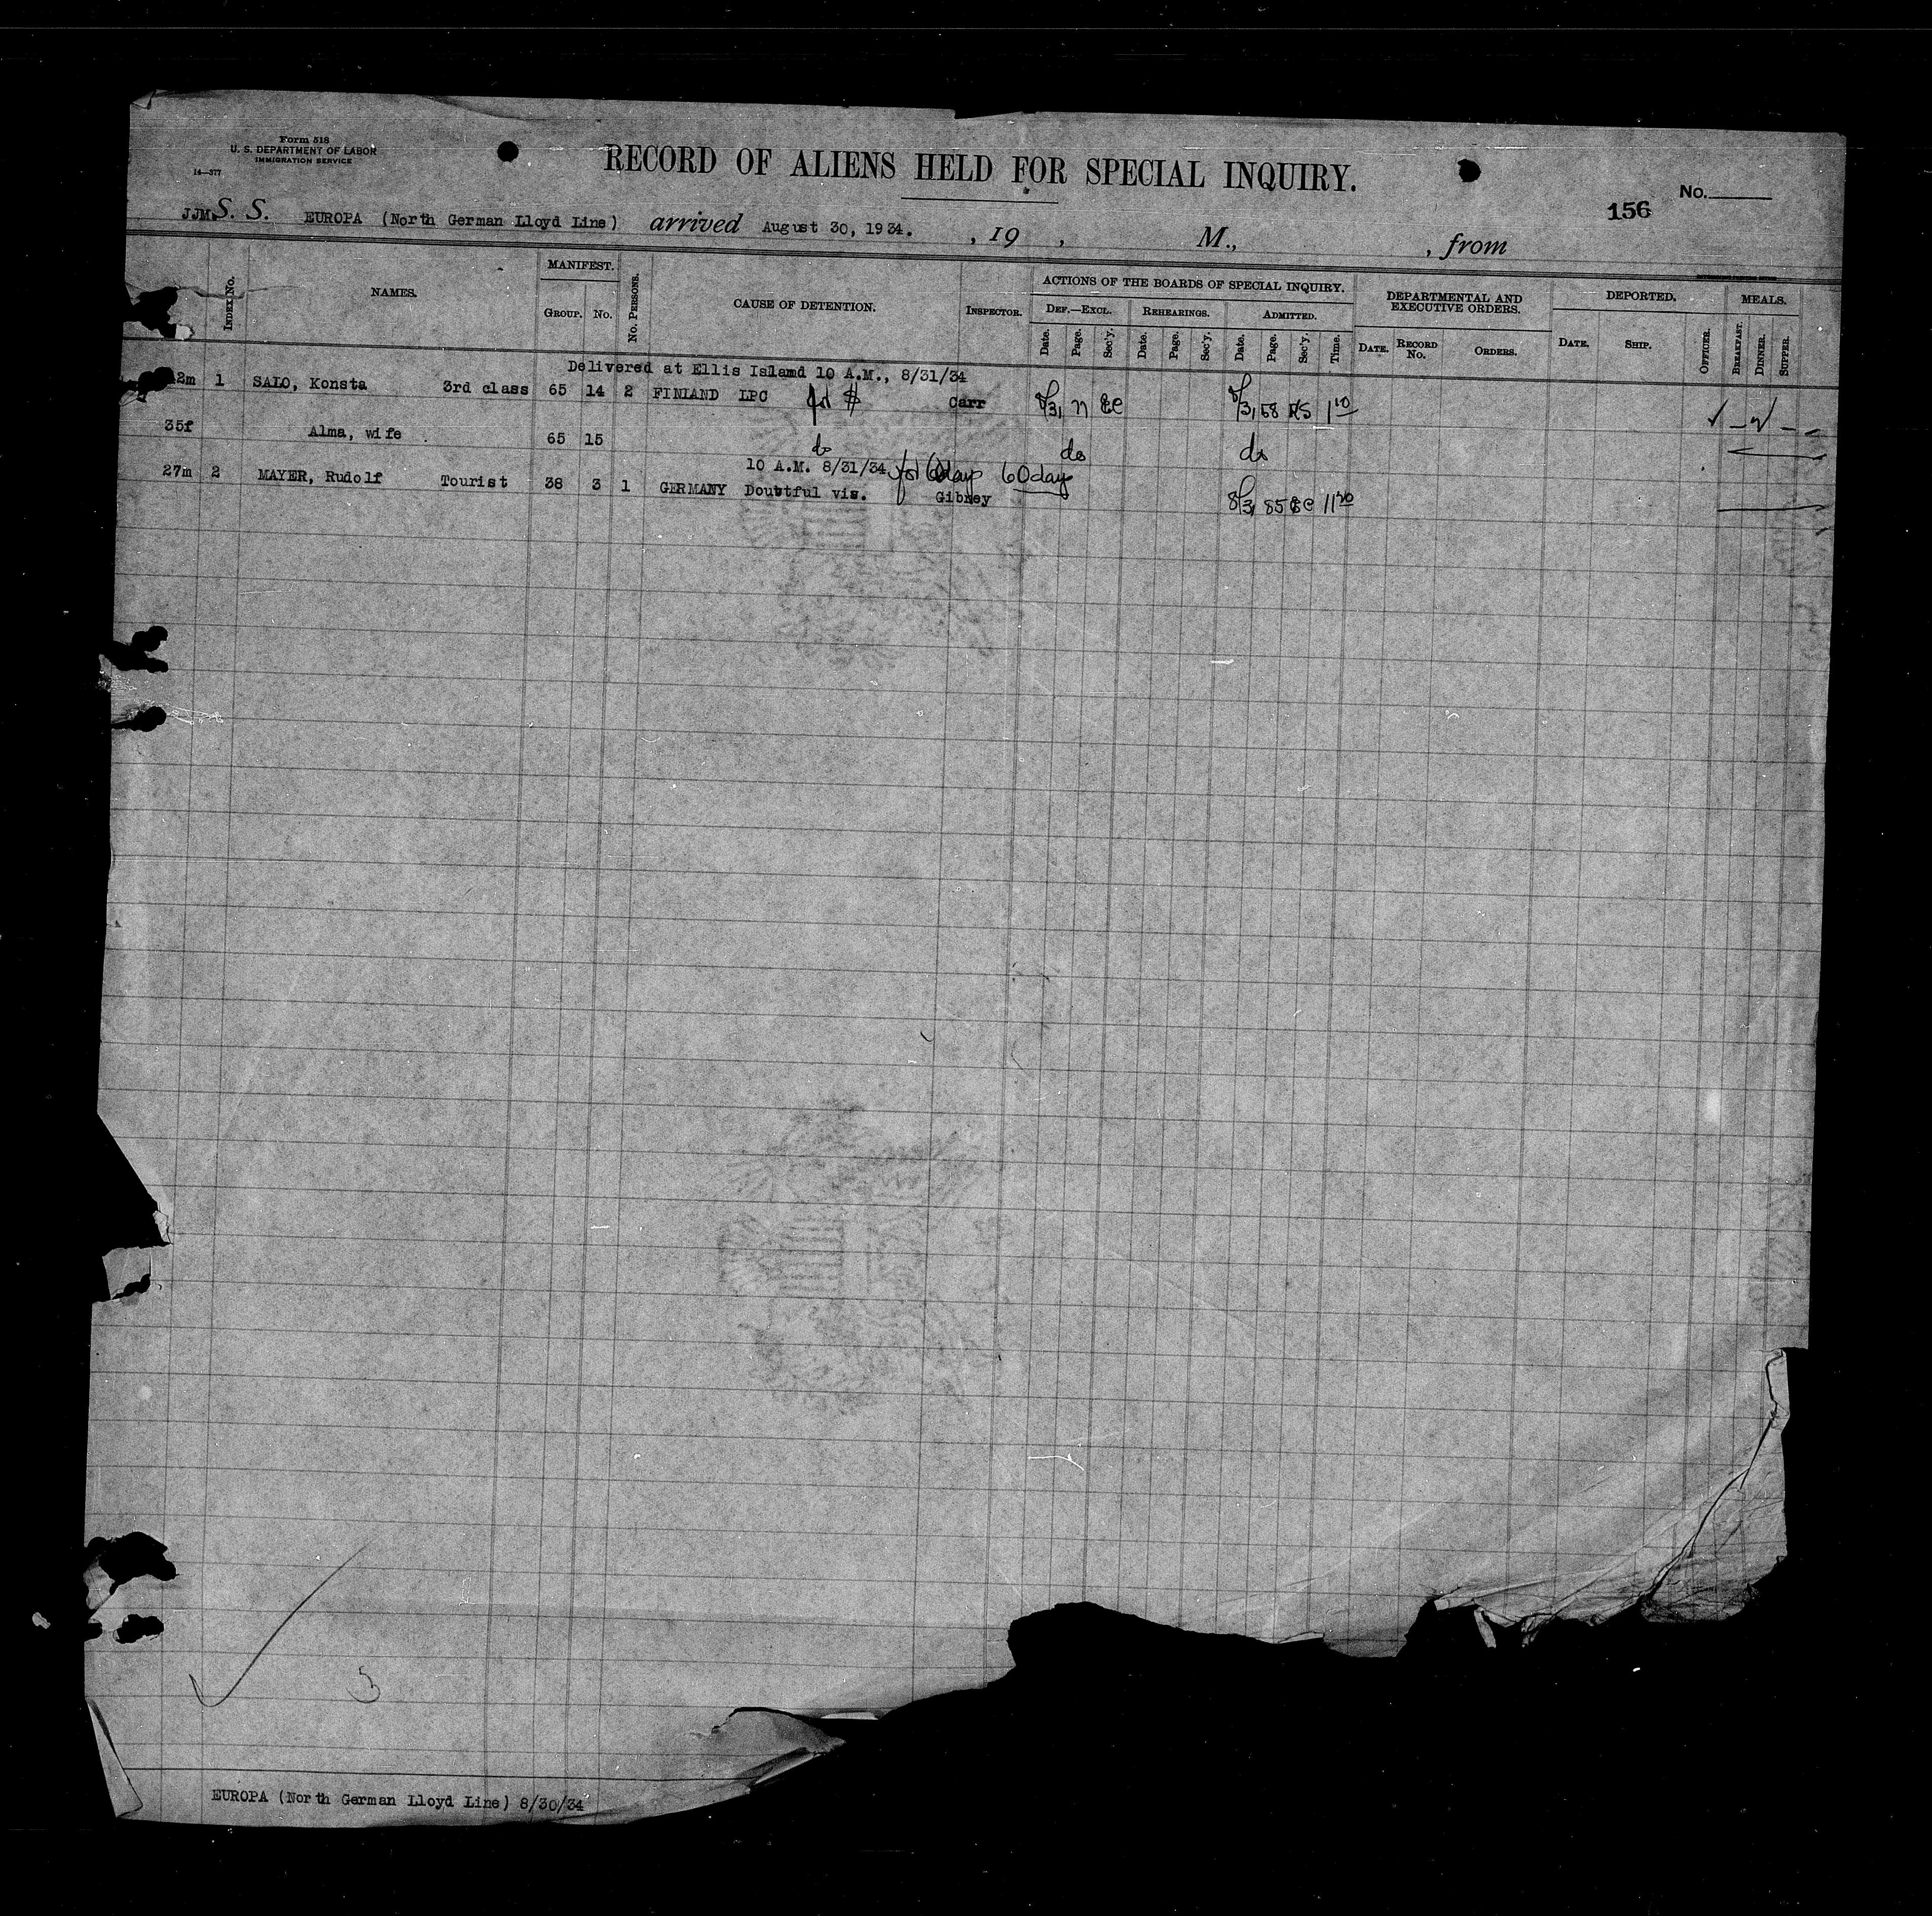 Form 518
U. S. DEPARTMENT OF LABOR
IMMIGRATION SERVICE
14—377
RECORD OF ALIENS HELD FOR SPECIAL INQUIRY.
No.
156
JJM S. S. EUROPA (North German Lloyd Line) arrived August 30, 1934. , 19 , M., , from
INDEX No. NAMES. MANIFEST. GROUP. No. No. PERSONS. CAUSE OF DETENTION. INSPECTOR. ACTIONS OF THE BOARDS OF SPECIAL INQUIRY. DEPARTMENTAL AND EXECUTIVE ORDERS. DEPORTED. MEALS.
DEF.—EXCL. REHEARINGS. ADMITTED.
Date. Page. Sec'y. Date. Page. Sec'y. Date. Page. Sec'y. Time. DATE. RECORD No. ORDERS. DATE. SHIP. OFFICER. BREAKFAST. DINNER. SUPPER.
Delivered at Ellis Island 10 A.M., 8/31/34
2m 1 SALO, Konsta 3rd class 65 14 2 FINLAND LPC $ Carr 8/31 8/31 58 1 10
35f Alma, wife 65 15 do do do
10 A.M. 8/31/34 60 day 60 day
27m 2 MAYER, Rudolf Tourist 38 3 1 GERMANY Doubtful vis. Gibney 8/31 85 11 20
5
EUROPA (North German Lloyd Line) 8/30/34